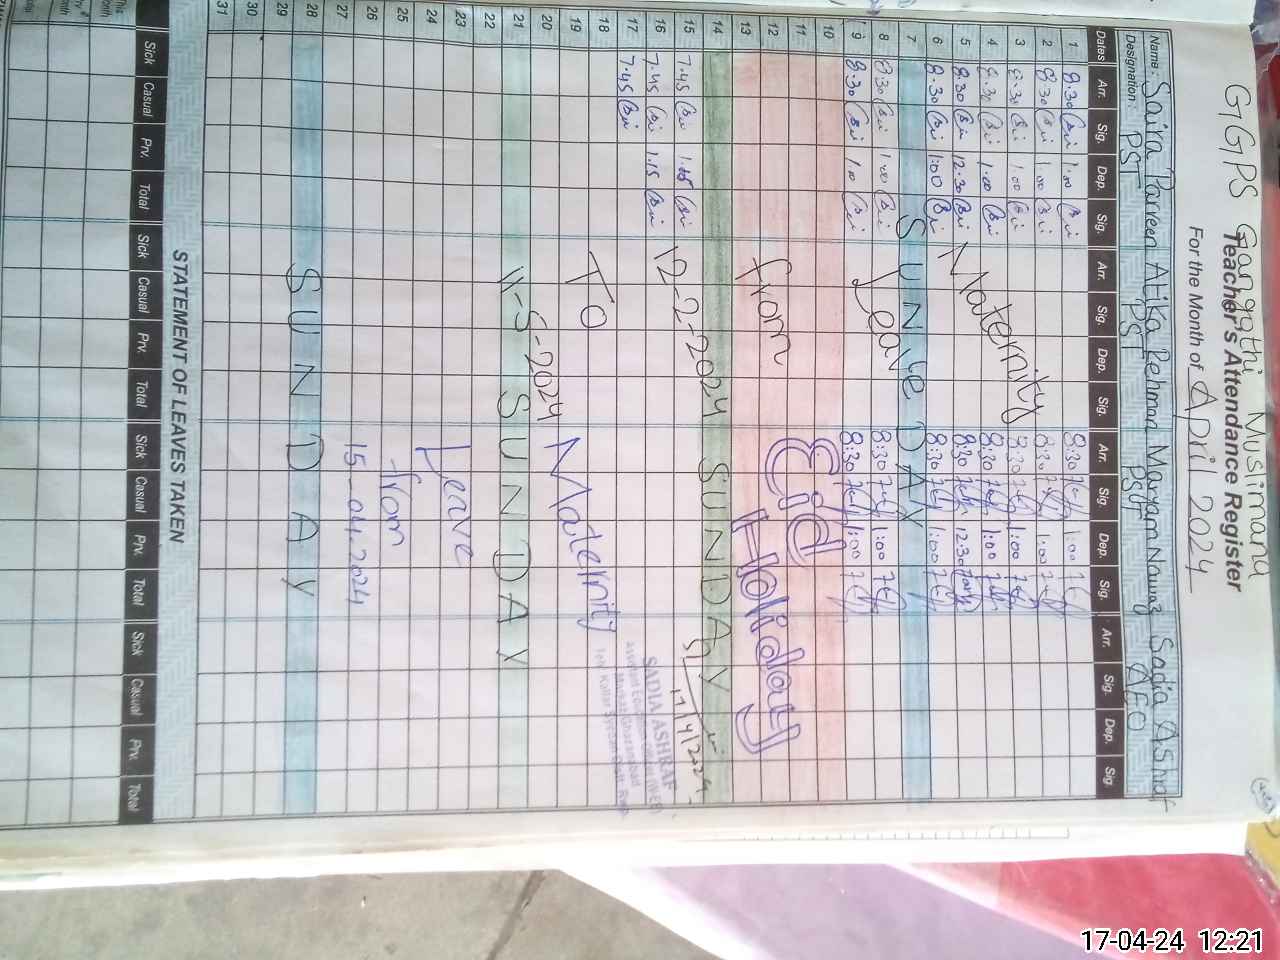 GGPS Gangothi Muslimana
Teacher's Attendance Register
For the Month of April 2024
Name: Saira Parveen Atika Rehman Maryam Nawaz Sadia Ashraf
Designation: PST PST PST AEO
Dates Arr. Sig. Dep. Sig. Arr. Sig. Dep. Sig. Arr. Sig. Dep. Sig. Arr. Sig. Dep. Sig.
1 8:30 1:00 8:30 1:00
2 8:30 1:00 8:30 1:00
3 8:30 1:00 8:30 1:00
4 8:30 1:00 8:30 1:00
5 8:30 12:30 8:30 12:30
6 8:30 1:00 8:30 1:00
Maternity
7 SUNDAY
8 8:30 1:00 8:30 1:00
Leave
9 8:30 1:00 8:30 1:00
10
11
12
Eid
13
from Holiday
14 SUNDAY
15 7:45
17/4/2024
16 7:45 1:15
12-2-2024
17 7:45
SADIA ASHRAF
18
TO
19
20
Maternity
21 SUNDAY
11-5-2024
22
23
24
Leave
25
from
26
27
15-04-2024
28 SUNDAY
29
30
31
STATEMENT OF LEAVES TAKEN
Sick Casual Prv. Total Sick Casual Prv. Total Sick Casual Prv. Total Sick Casual Prv. Total
17-04-24 12:21